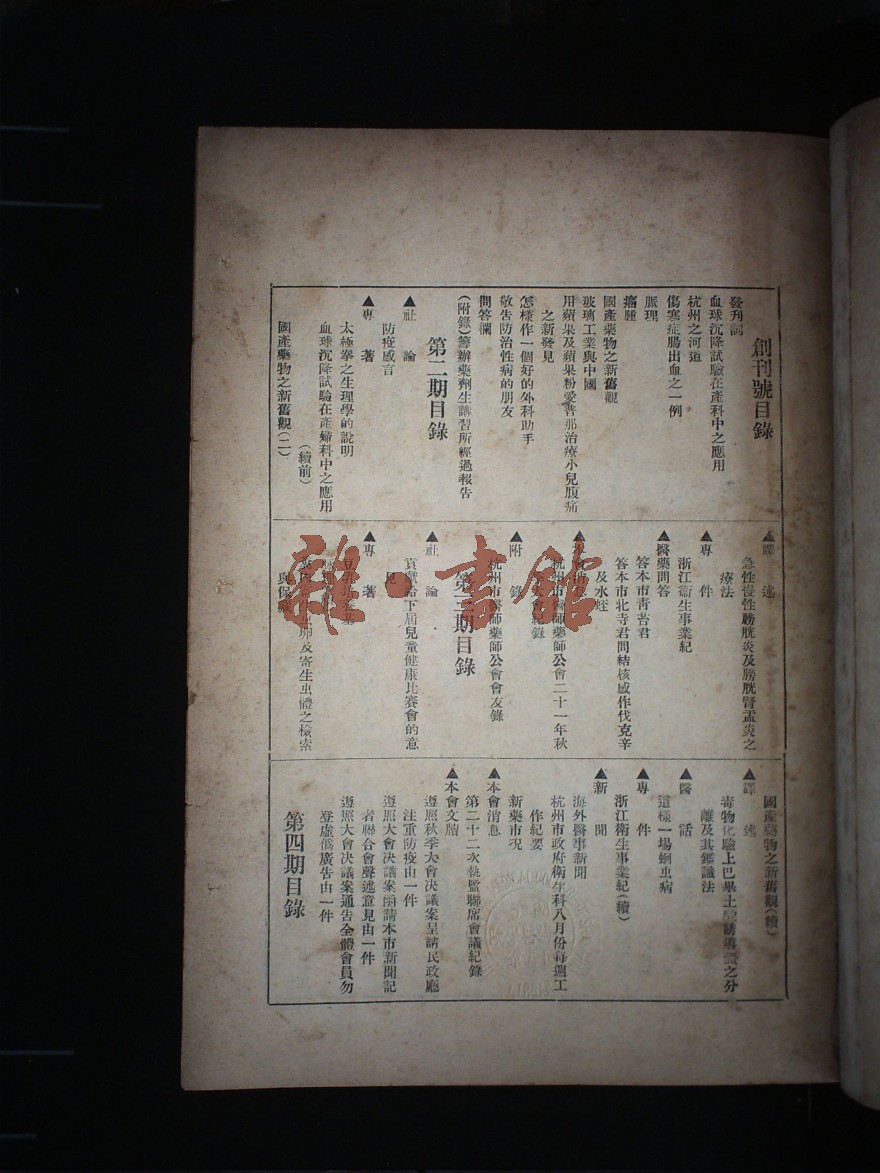 創刊號目錄
發刊詞
血球沉降試驗在產科中之應用
杭州之河道
傷寒症腸出血之一例
脈理
癰腫
國產藥物之新舊觀
玻璃工業與中國
用蘋果及蘋果粉愛普那治療小兒腹痛
之新發見
怎樣作一個好的外科助手
敬告防治性病的朋友
問答欄
(附錄)籌辦藥劑生講習所經過報告
第二期目錄
▲社論
防疫感言
▲專著
太極拳之生理學的說明
血球沉降試驗在產婦科中之應用
(續前)
國產藥物之新舊觀(二)
▲譯述
急性慢性膀胱炎及膀胱腎盂炎之
療法
▲專件
浙江衛生事業紀
▲醫藥問答
答本市靑苔君
答本市北寺君問結核感作伐克辛
及水蛭
杭州市醫師藥師公會二十一年秋
大會紀錄
▲附錄
杭州市醫師藥師公會會友錄
第三期目錄
▲社論
貢獻給下屆兒童健康比賽會的意
見
▲專著
卵及寄生虫體之檢索
與保藏
國產藥物之新舊觀(續)
▲譯述
毒物化驗上巴畢土酸誘導體之分
離及其鑑識法
▲醫話
這樣一場蛔虫病
▲專件
浙江衛生事業紀(續)
▲新聞
海外醫事新聞
杭州市政府衛生科八月份每週工
作紀要
新藥市況
▲本會消息
第二十二次執監聯席會議紀錄
▲本會文牘
遵照秋季大會決議案呈請民政廳
注重防疫由一件
遵照大會決議案函請本市新聞記
者聯合會聲述意見由一件
遵照大會決議案通告全體會員勿
登虛僞廣告由一件
第四期目錄
雜·書館